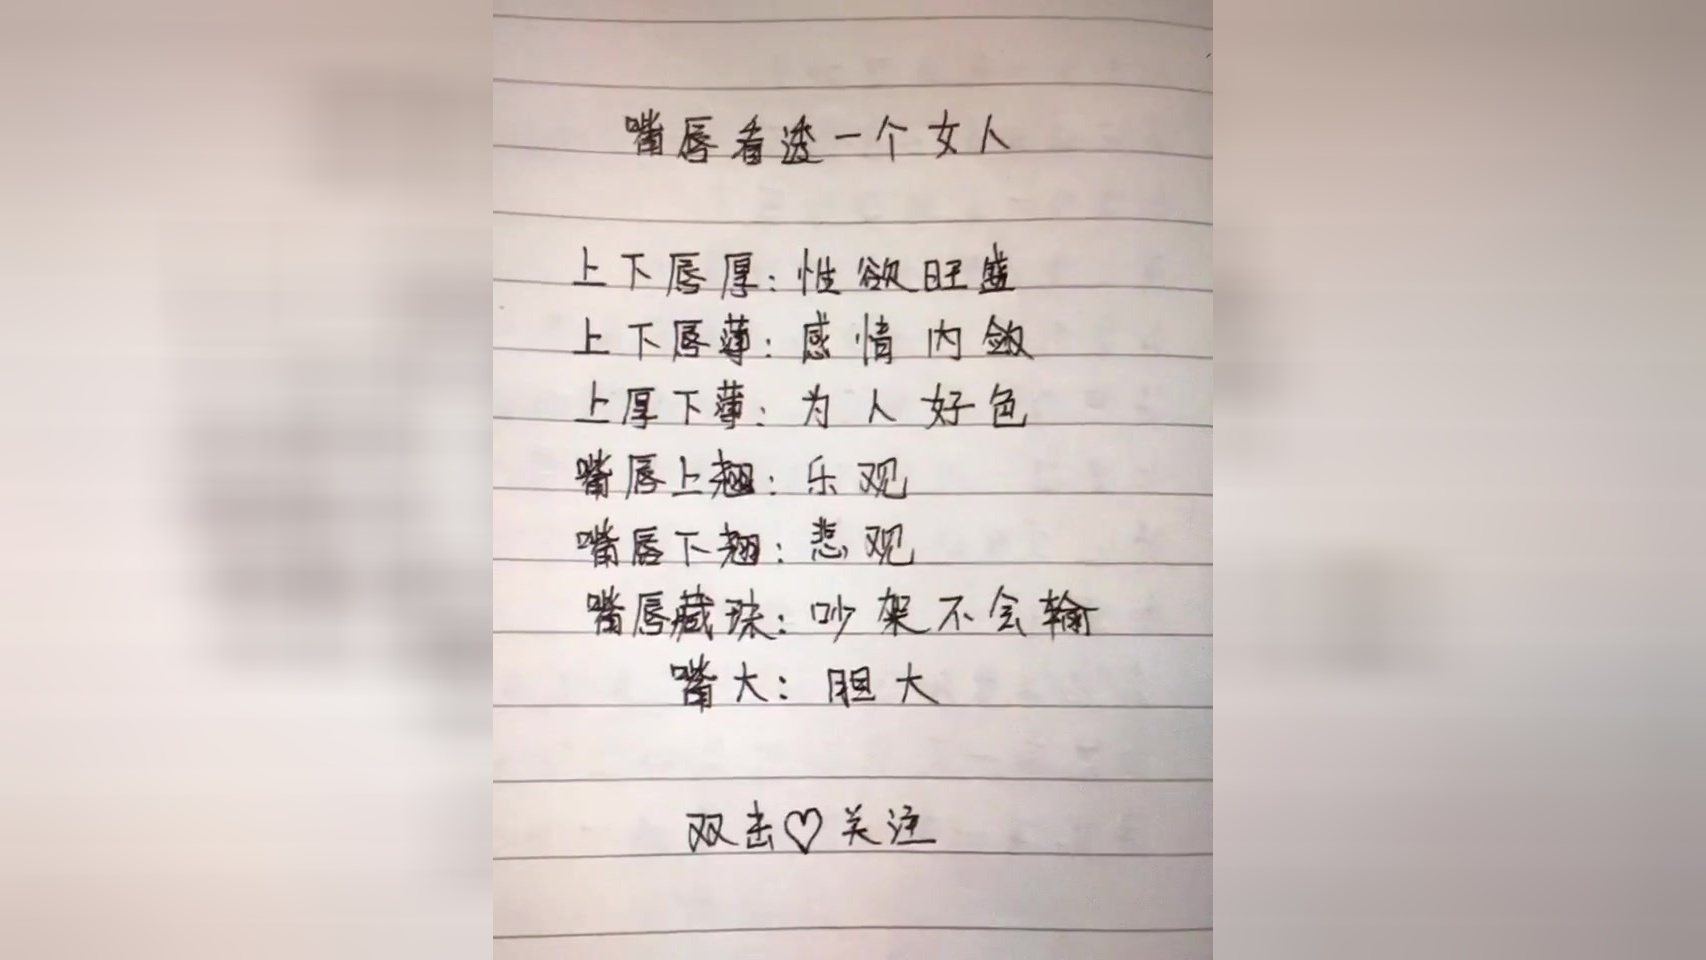 嘴唇看透一个女人
上下唇厚：性欲旺盛
上下唇薄：感情内敛
上厚下薄：为人好色
嘴唇上翘：乐观
嘴唇下翘：悲观
嘴唇藏珠：吵架不会输
嘴大：胆大
双击♡关注